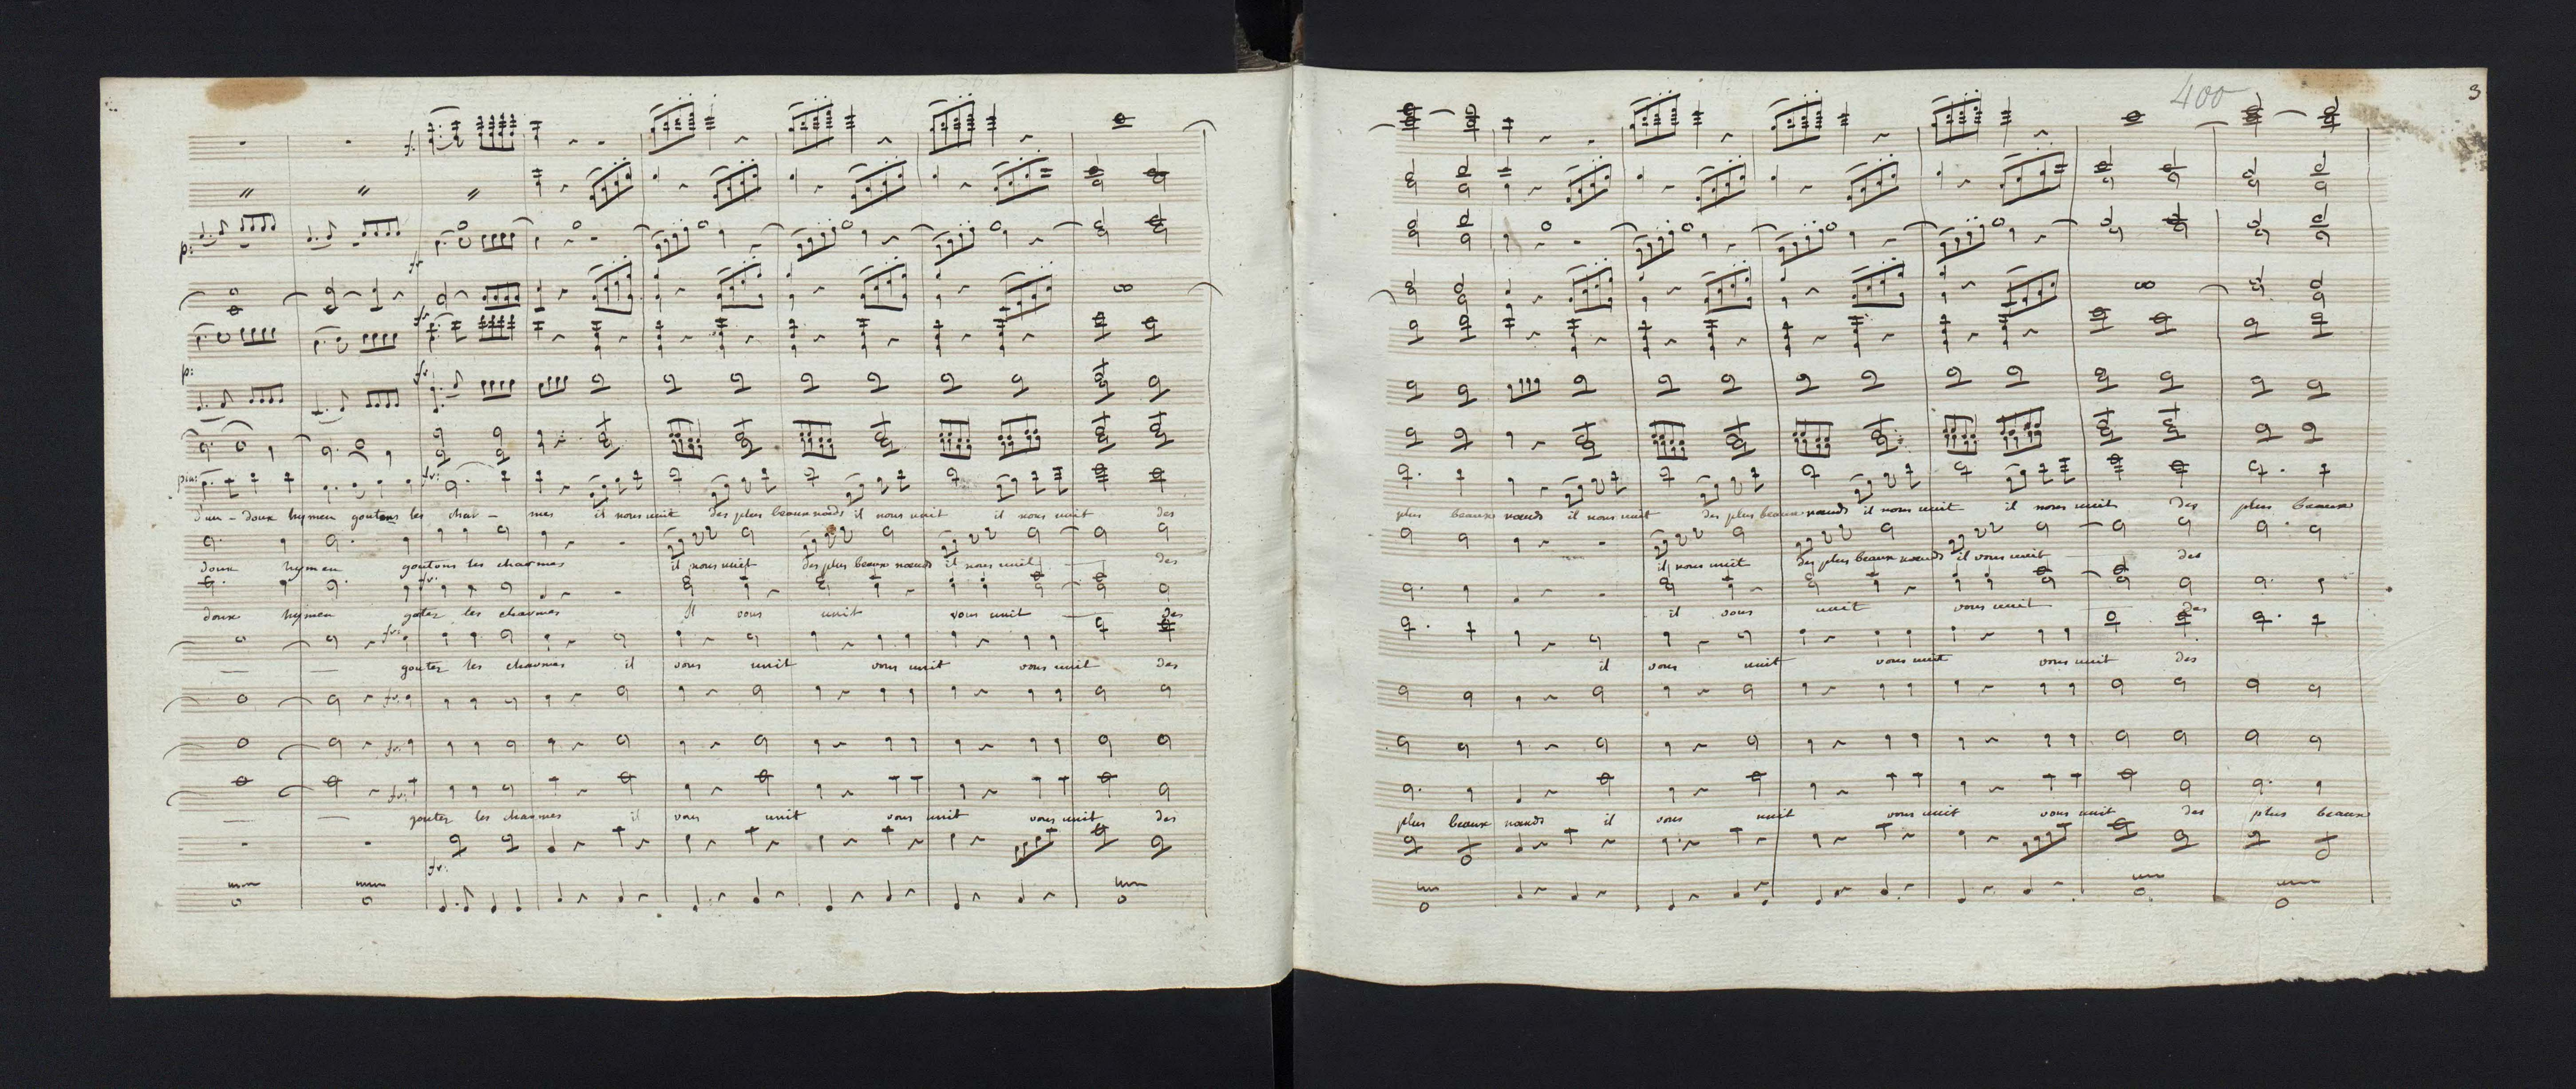 400
3
f.
p:
fr
fr.
p:
fr.
pia:
fr:
d'un - doux hymen goutons les char - mes il nous unit des plus beaux nœuds il nous unit il nous unit des
doux hymen goutons les charmes il nous unit des plus beaux nœuds il nous unit des
fr.
doux hymen goutez les charmes Il vous unit vous unit des
fr.
goutez les charmes il vous unit vous unit vous unit des
fr.
fr.
fr.
goutez les charmes il vous unit vous unit vous unit des
fr.
plus beaux nœuds il nous unit des plus beaux nœuds il nous unit il nous unit des plus beaux
il nous unit des plus beaux nœuds il vous unit des
il vous unit vous unit des
il vous unit vous unit vous unit des
plus beaux nœuds il vous unit vous unit vous unit des plus beaux